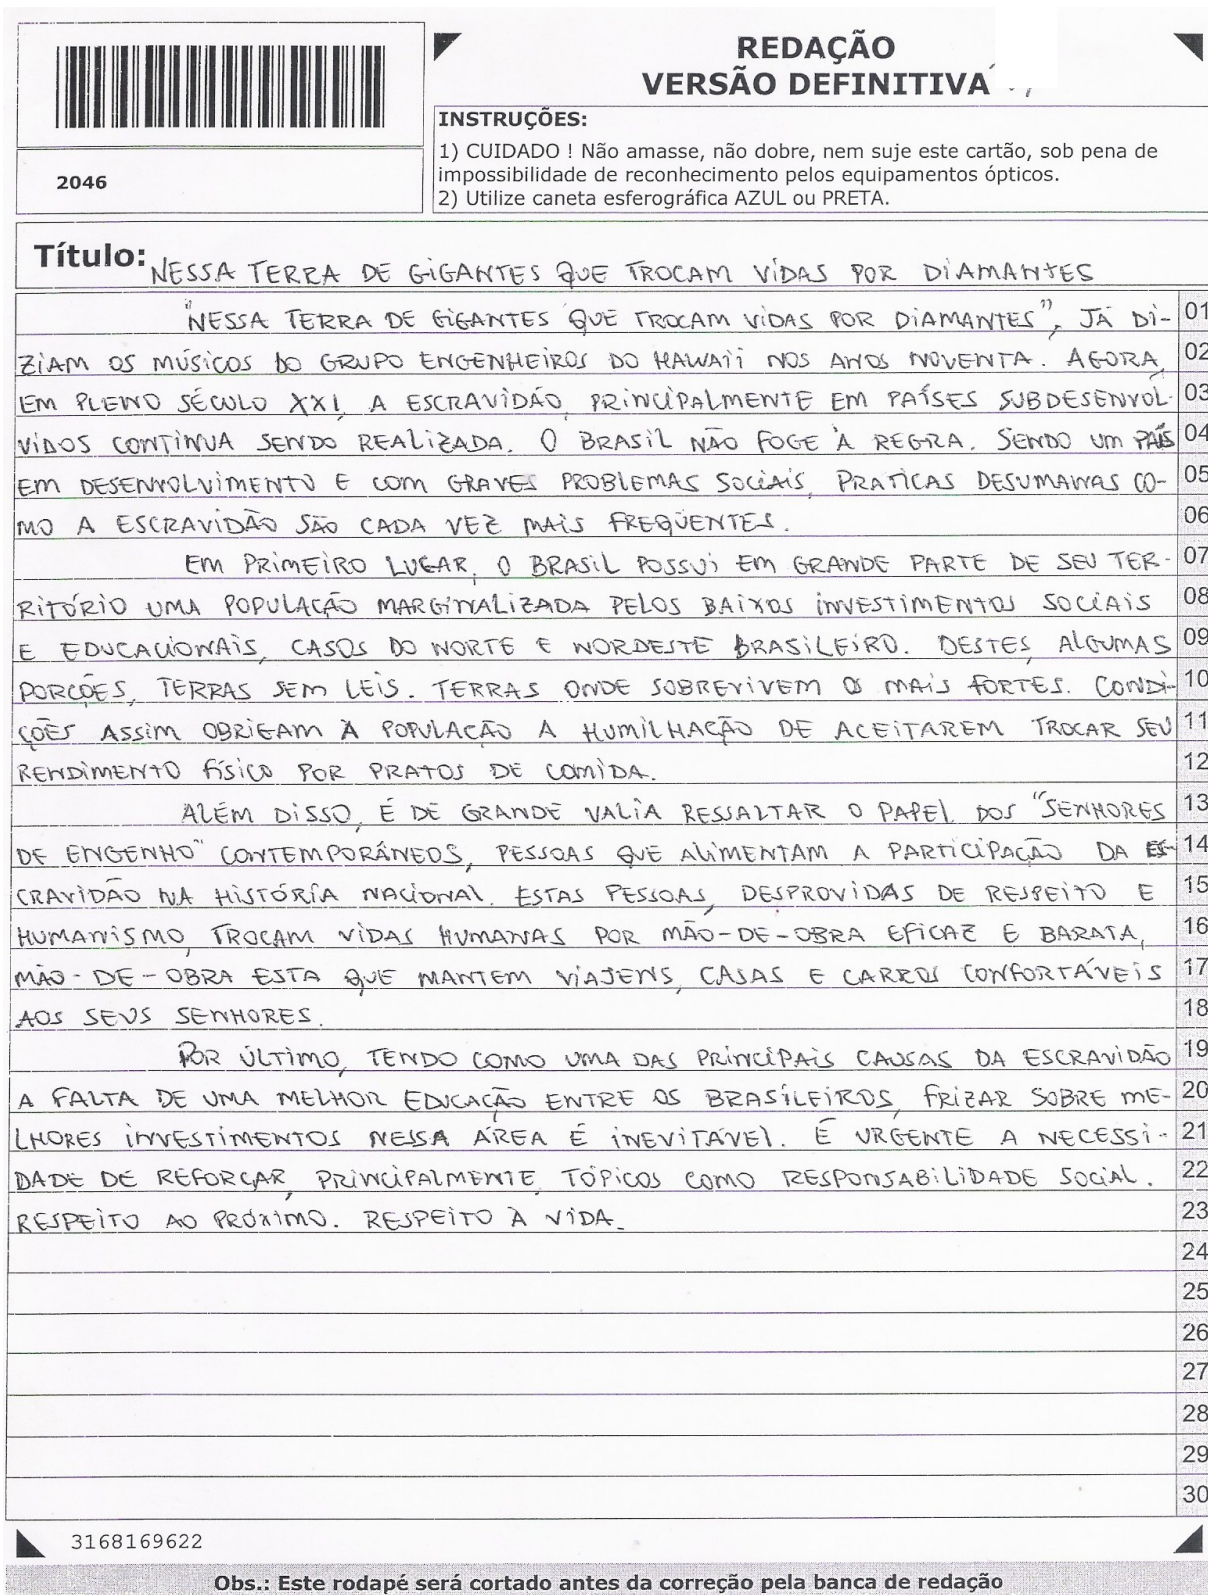 REDAÇÃO
VERSÃO DEFINITIVA
INSTRUÇÕES:
1) CUIDADO ! Não amasse, não dobre, nem suje este cartão, sob pena de
impossibilidade de reconhecimento pelos equipamentos ópticos.
2) Utilize caneta esferográfica AZUL ou PRETA.
2046
Título: NESSA TERRA DE GIGANTES QUE TROCAM VIDAS POR DIAMANTES
"NESSA TERRA DE GIGANTES QUE TROCAM VIDAS POR DIAMANTES", JÁ DI- 01
ZIAM OS MÚSICOS DO GRUPO ENGENHEIROS DO HAWAII NOS ANOS NOVENTA. AGORA, 02
EM PLENO SÉCULO XXI, A ESCRAVIDÃO, PRINCIPALMENTE EM PAÍSES SUBDESENVOL- 03
VIDOS CONTINUA SENDO REALIZADA. O BRASIL NÃO FOGE À REGRA. SENDO UM PAÍS 04
EM DESENVOLVIMENTO E COM GRAVES PROBLEMAS SOCIAIS, PRATICAS DESUMANAS CO- 05
MO A ESCRAVIDÃO SÃO CADA VEZ MAIS FREQÜENTES. 06
EM PRIMEIRO LUGAR, O BRASIL POSSUI EM GRANDE PARTE DE SEU TER- 07
RITÓRIO UMA POPULAÇÃO MARGINALIZADA PELOS BAIXOS INVESTIMENTOS SOCIAIS 08
E EDUCACIONAIS, CASOS DO NORTE E NORDESTE BRASILEIRO. DESTES, ALGUMAS 09
PORCÕES, TERRAS SEM LEIS. TERRAS ONDE SOBREVIVEM OS MAIS FORTES. CONDI- 10
ÇÕES ASSIM OBRIGAM À POPULAÇÃO A HUMILHAÇÃO DE ACEITAREM TROCAR SEU 11
RENDIMENTO FÍSICO POR PRATOS DE COMIDA. 12
ALÉM DISSO, É DE GRANDE VALIA RESSALTAR O PAPEL DOS "SENHORES 13
DE ENGENHO" CONTEMPORÂNEOS, PESSOAS QUE ALIMENTAM A PARTICIPAÇÃO DA ES- 14
CRAVIDÃO NA HISTÓRIA NACIONAL. ESTAS PESSOAS, DESPROVIDAS DE RESPEITO E 15
HUMANISMO, TROCAM VIDAS HUMANAS POR MÃO-DE-OBRA EFICAZ E BARATA, 16
MÃO-DE-OBRA ESTA QUE MANTEM VIAJENS, CASAS E CARROS CONFORTÁVEIS 17
AOS SEUS SENHORES. 18
POR ÚLTIMO, TENDO COMO UMA DAS PRINCIPAIS CAUSAS DA ESCRAVIDÃO 19
A FALTA DE UMA MELHOR EDUCAÇÃO ENTRE OS BRASILEIROS, FRIZAR SOBRE ME- 20
LHORES INVESTIMENTOS NESSA ÁREA É INEVITÁVEL. É URGENTE A NECESSI- 21
DADE DE REFORÇAR, PRINCIPALMENTE, TÓPICOS COMO RESPONSABILIDADE SOCIAL. 22
RESPEITO AO PRÓXIMO. RESPEITO À VIDA. 23
24
25
26
27
28
29
30
3168169622
Obs.: Este rodapé será cortado antes da correção pela banca de redação